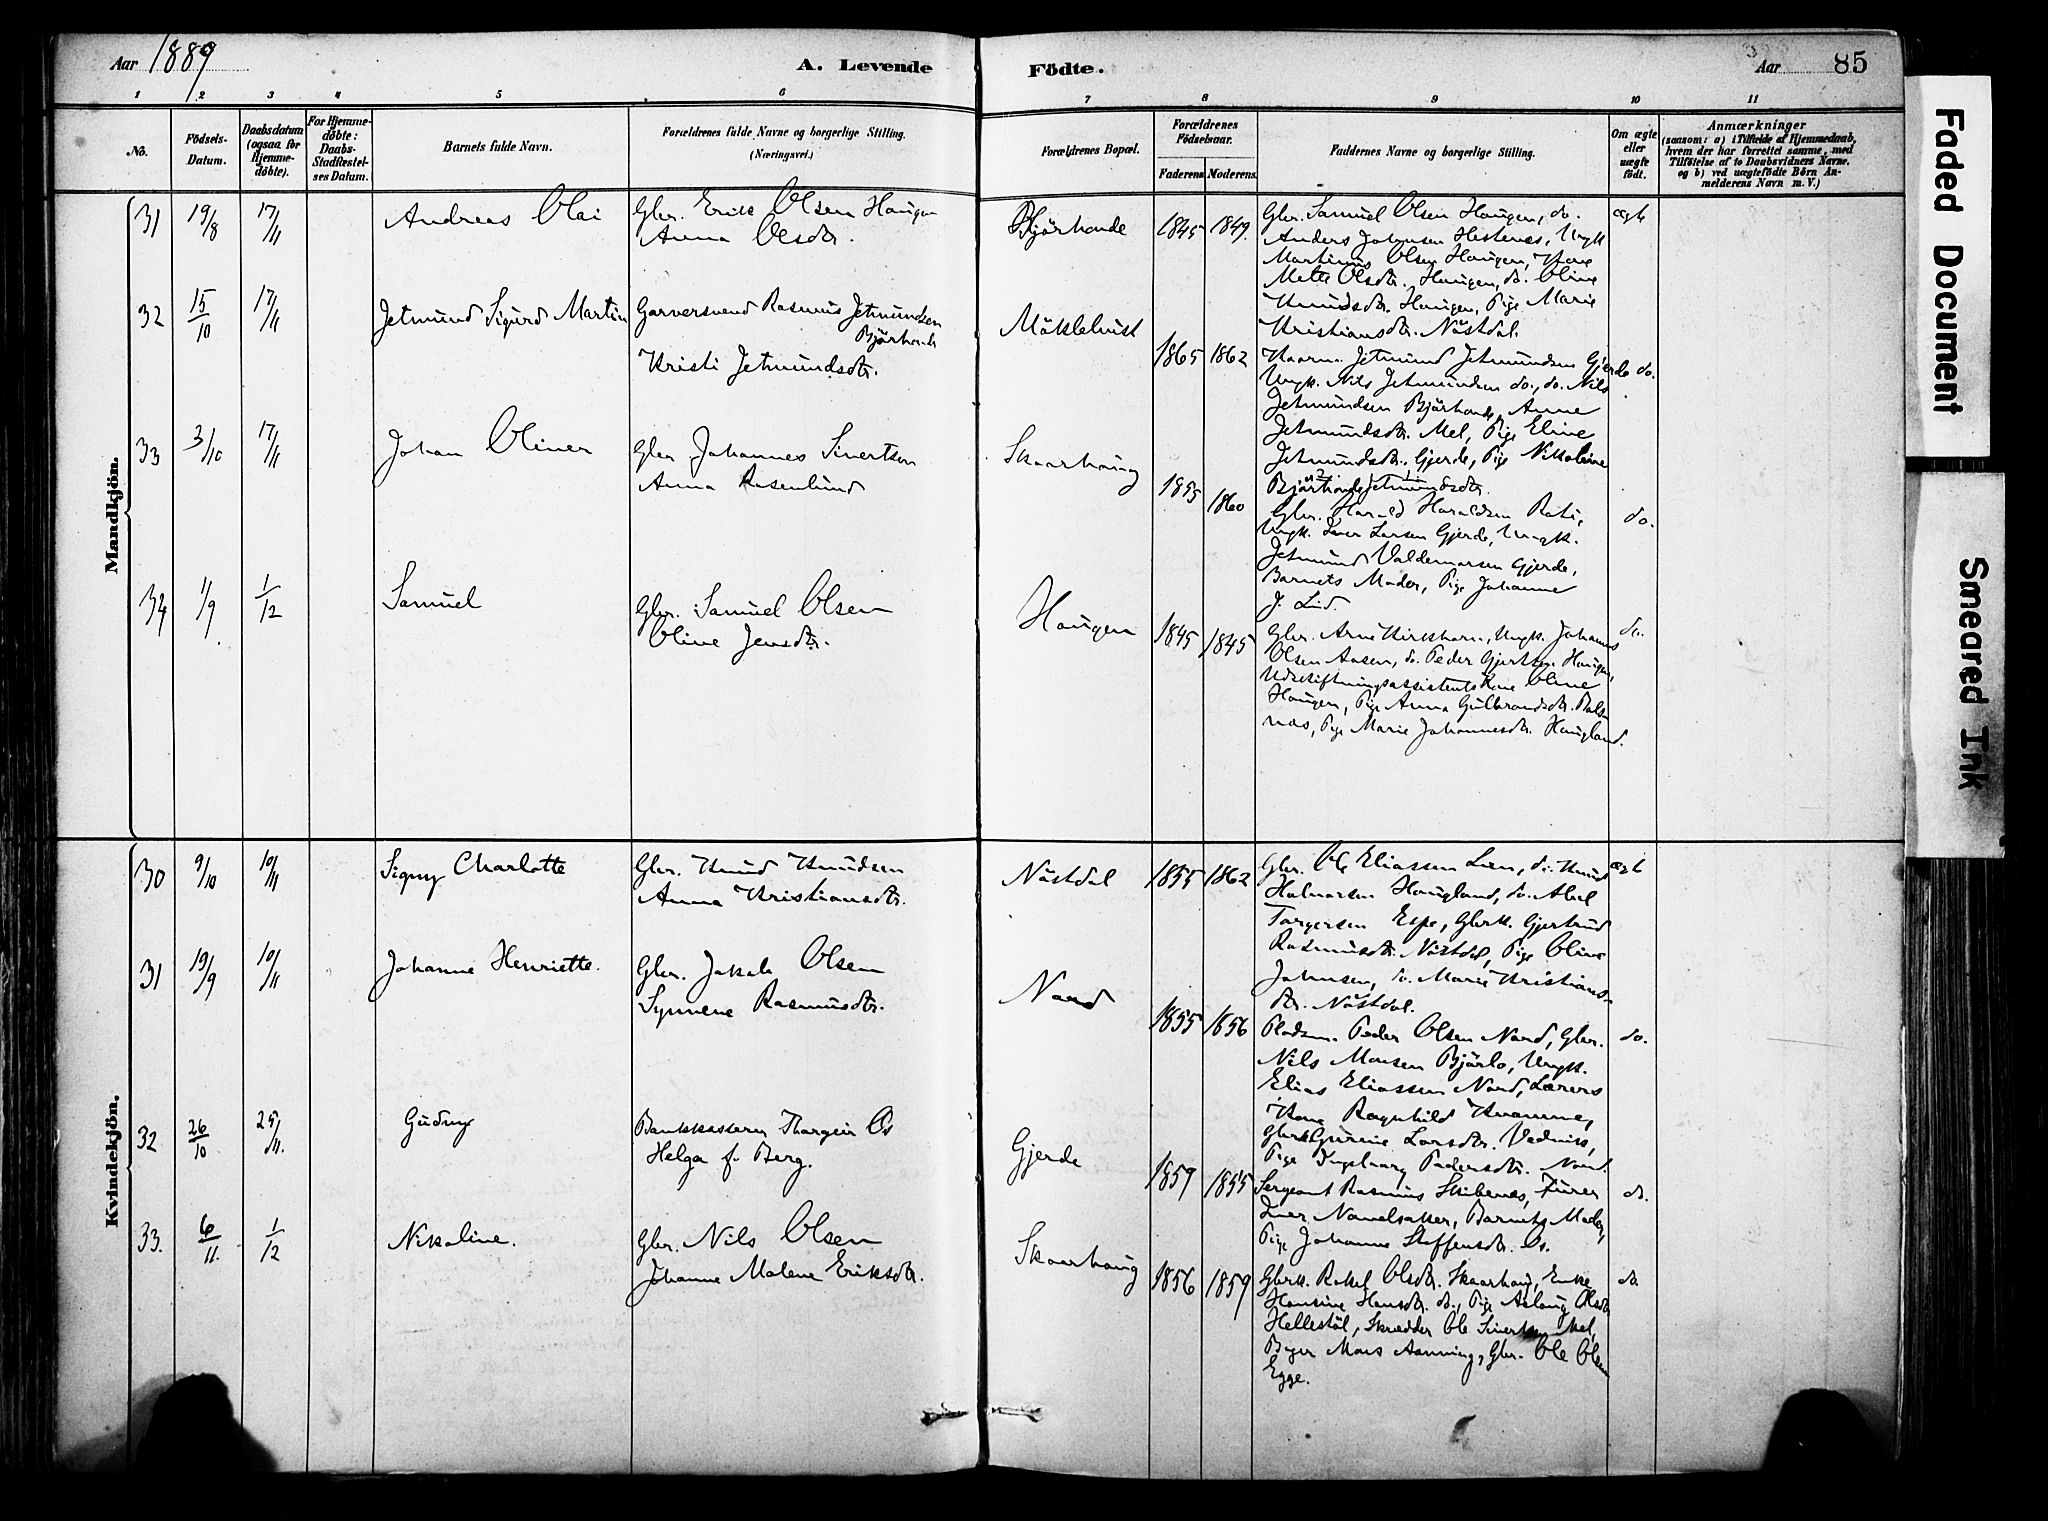 Aar 1889
A. Levende
Födte.
Aar
85
1 2 3 4 5 6 7 8 9 10 11
No.
Födsels-
Datum.
Daabsdatum
(ogsaa for
Hjemme-
döbte).
For Hjemme-
döbte:
Daabs-
Stadfæstel-
ses Datum.
Barnets fulde Navn.
Forældrenes fulde Navne og borgerlige Stilling.
(Næringsvei.)
Forældrenes Bopæl.
Forældrenes
Födselsaar.
Faderens Moderens.
Faddernes Navne og borgerlige Stilling.
Om ægte
eller
uægte
födt.
Anmærkninger
(saasom: a) i Tilfælde af Hjemmedaab,
hvem der har forrettet samme, med
Tilföielse af to Daabsvidners Navne.
og b) ved uægtefödte Börn An-
melderens Navn m. V.)
Mandkjön.
31 19/8 17/11 Andreas Olai Gbr. Erik Olsen Haugen
Anna Olsdtr.
Bjørhovde 1845 1849
Gbr. Samuel Olsen Haugen, do.
Anders Johansen Hestenes, Ungk
Martinus Olsen Haugen, Kone
Mette Olsdtr. Haugen, do. Oline
Knudsdtr. Haugen, Pige Marie
Kristiansdtr. Nöstdal.
ægte
32 15/10 17/11 Jetmund Sigurd Martin Garversvend Rasmus Jetmundsen
Bjørhovde
Kristi Jetmundsdtr.
Mökkelhust 1865 1862
Kaarm. Jetmund Jetmundsen Gjerde
Ungk. Nils Jetmundsen do., do. Nils
Jetmundsen Bjørhovde, Anne
Jetmundsdtr. Mel, Pige Eline
Jetmundsdtr. Gjerde, Pige Nikoline
Bjørhovde Jetmundsdtr.
do.
33 3/10 17/11 Johan Oliner Gbr Johannes Sivertsen
Anna Rosenlund
Skaarhaug 1855 1860
Gbr. Harald Haraldsen Roti,
Ungk. Iver Larsen Gjerde, Ungk.
Jetmund Valdemarsen Gjerde,
Barnets Moder, Pige Johanne
J. Lid.
do.
34 1/9 1/12 Samuel Gbr. Samuel Olsen
Oline Jensdtr.
Haugen 1845 1845
Gbr. Arne Kirkhorn, Ungk. Johannes
Olsen Aasen, do. Peder Gjertsen Haugen,
Udskiftningsassistents Kone Oline
Haugen, Pige Anna Gulbrandsdtr.
nes, Pige Marie Johannesdtr. Haugland.
do.
Kvindekjön.
30 9/10 10/11 Signy Charlotte Gbr. Knud Knudsen
Anna Kristiansdtr.
Nöstdal 1855 1862
Gbr. Ole Eliassen Lien, do. Knud
Halvorsen Haugland, do. Abel
Torgersen Espe, Gbrk. Gjertrud
Rasmusdtr. Nöstdal, Pige Oline
Johnsen, do. Marie Kristians-
dtr. Nöstdal.
ægte
31 19/9 10/11 Johanne Henriette. Gbr. Jakob Olsen
Synneve Rasmusdtr.
Nord 1855 1856
Pladsm. Peder Olsen Nord, Gbr.
Nils Monsen Bjørlo, Ungk.
Elias Eliassen Nord, Lærers
Kone Ragnhild Kvamme,
Gbrk Gurine Larsdtr. Vedvik,
Pige Ingeborg Pedersdtr. Nord.
do.
32 26/10 25/11. Gudny Bankkasserer Thorgeir Os
Helga f. Berg.
Gjerde 1859 1855
Sergeant Rasmus Skibenes, Furer
Iver Navelsaker, Barnets Moder,
Pige Johanne Steffensdtr. Os.
do.
33. 6/11. 1/12 Nikoline. Gbr. Nils Olsen
Johanne Malene Eriksdtr.
Skaarhaug 1856 1859
Gbrk. Rakel Olsdtr. Skaarhaug, Enke
Hansine Hansdtr. do., Pige Aslaug Olsdtr
Hellestöl, Skrædder Ole Sivertsen Mel,
Mons Aanning, Gbr. Ole Olsen
Egge.
do
Faded Document
Smeared Ink